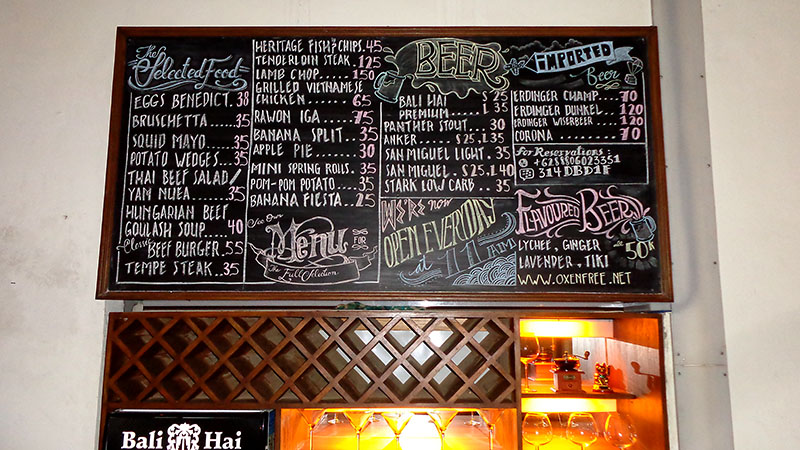 The
Selected Food
EGGS BENEDICT. 38
BRUSCHETTA.....35
SQUID MAYO.....35
POTATO WEDGES...35
THAI BEEF SALAD/
YAM NUEA.....35
HUNGARIAN BEEF
GOULASH SOUP....40
Classic
BEEF BURGER.55
TEMPE STEAK.35
HERITAGE FISH N' CHIPS.45
TENDERLOIN STEAK.125
LAMB CHOP.....150
GRILLED VIETNAMESE
CHICKEN......65
RAWON IGA....75
BANANA SPLIT..35
APPLE PIE.....30
MINI SPRING ROLLS.35
POM-POM POTATO....35
BANANA FIESTA..25
See Our
Menu
FOR
The Full Selection
BEER
BALI HAI S 25
PREMIUM.....L 35
PANTHER STOUT..30
ANKER.......S 25,L35
SAN MIGUEL LIGHT.35
SAN MIGUEL.S 25,L40
STARK LOW CARB..35
WE'RE now
OPEN EVERYDAY
at 11 AM
IMPORTED
Beer
ERDINGER CHAMP....70
ERDINGER DUNKEL..120
ERDINGER WISERBEER..120
CORONA.........70
For Reservations :
+6288806023351
314DBD1F
FLAVOURED BEER
LYCHEE, GINGER
LAVENDER, TIKI
50K
WWW.OXENFREE.NET
Bali Hai